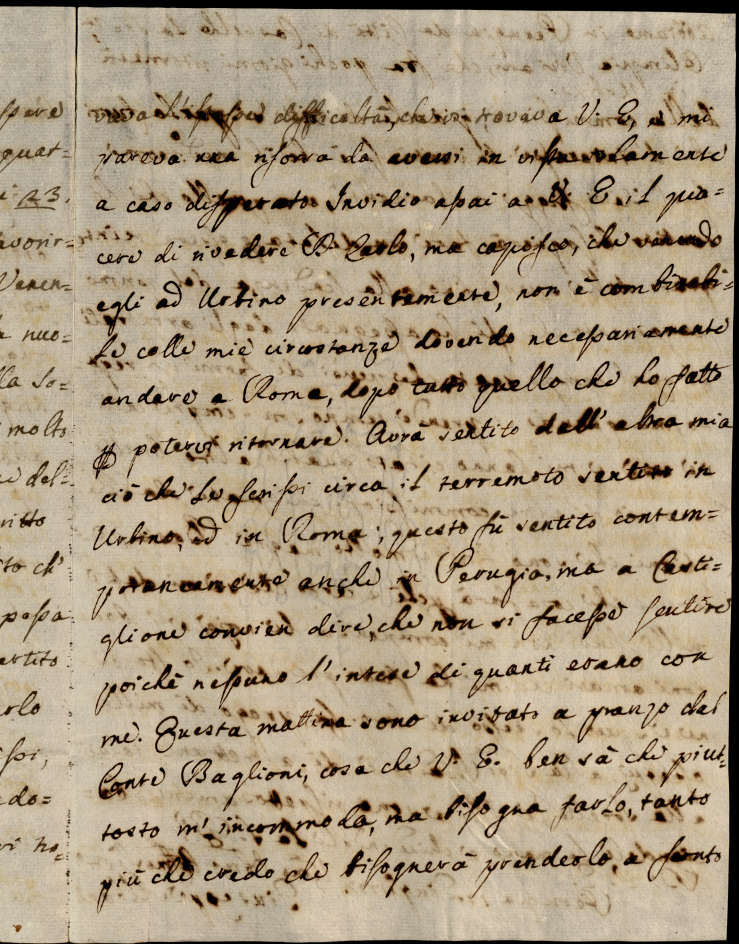 spere
quat=
i 23.
avorir=
Veren=
nuo=
lla So=
molto
del=
ritto
to ch'
passa
ertito
rlo
ssi,
do=
ri no=
l'istesse difficoltà, che vi trovava V. E, e mi
pareva una risorsa da aversi in vista solamente
a caso disperato. Invidio assai a V. E. il pia=
cere di rivedere D. Carlo, ma capisco, che venendo
egli ad Urbino presentemente, non è combinabi=
le colle mie circostanze dovendo necessariamente
andare a Roma, dopo tutto quello che ho fatto
ꝑ potervi ritornare. Avrà sentito dall' altra mia
ciò che Le scrissi circa il terremoto sentito in
Urbino, ed in Roma; questo fù sentito contem=
poraneamente anche in Perugia, ma a Casti=
glione convien dire, che non si facesse sentire
poichè nessuno l'intese di quanti erano con
me. Questa mattina sono invitato a pranzo dal
Conte Baglioni, cosa che V. E. ben sà che piut=
tosto m' incommoda, ma bisogna farlo, tanto
più che credo che bisognerà prenderlo a conto